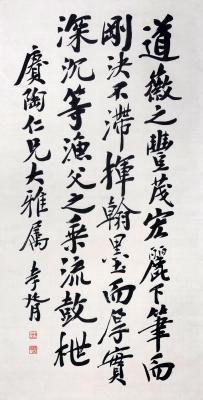 道徽之豐茂宏麗下筆而
剛決不滯揮翰墨而厚實
深沉等漁父之乘流鼓枻
賡陶仁兄大雅属 孝胥